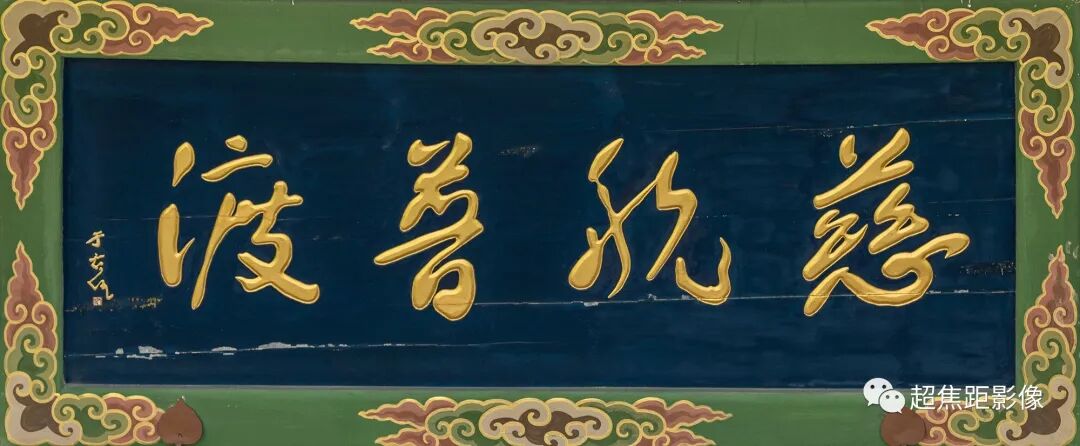 慈航普渡
于右任
超焦距影像